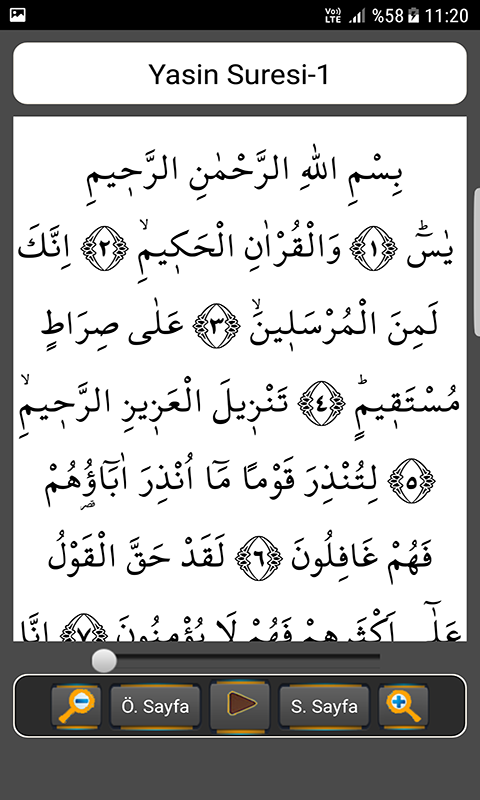 Vo)) LTE %58 11:20
Yasin Suresi-1
بِسْمِ اللّٰهِ الرَّحْمٰنِ الرَّح۪يمِ
يٰسٓۜ ﴿١﴾ وَالْقُرْاٰنِ الْحَك۪يمِۙ ﴿٢﴾ اِنَّكَ
لَمِنَ الْمُرْسَل۪ينَۙ ﴿٣﴾ عَلٰى صِرَاطٍ
مُسْتَق۪يمٍۜ ﴿٤﴾ تَنْز۪يلَ الْعَز۪يزِ الرَّح۪يمِۙ
﴿٥﴾ لِتُنْذِرَ قَوْمًا مَٓا اُنْذِرَ اٰبَٓاؤُ۬هُمْ
فَهُمْ غَافِلُونَ ﴿٦﴾ لَقَدْ حَقَّ الْقَوْلُ
عَلٰٓى اَكْثَرِهِمْ فَهُمْ لَا يُؤْمِنُونَ ﴿٧﴾ اِنَّا
Ö. Sayfa S. Sayfa